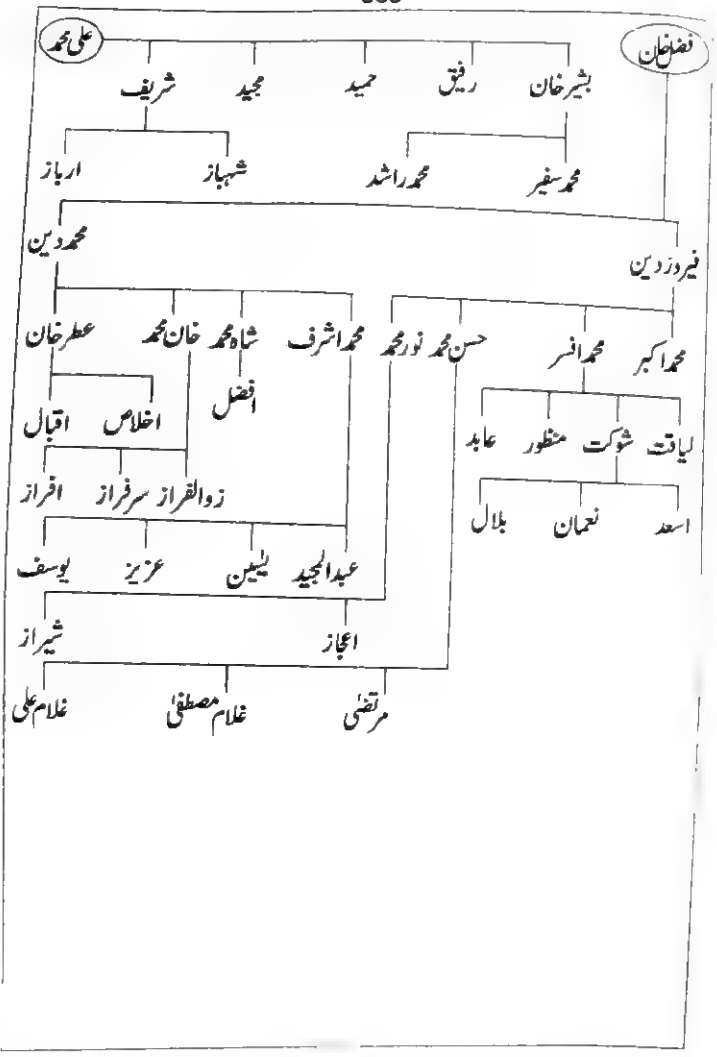 فضل خان علی محمد
بشیر خان رفیق حمید مجید شریف
محمد سفیر محمد راشد شہباز ارباز
فیروز دین محمد دین
محمد اکبر محمد افسر حسن محمد نور محمد محمد اشرف شاہ محمد خان محمد عطر خان
افضل اخلاص اقبال
لیاقت شوکت منظور عابد
زوالفراز سرفراز افراز
اسعد نعمان بلال
عبدالمجید یٰسین عزیز یوسف
اعجاز شیراز
مرتضٰی غلام مصطفٰی غلام علی